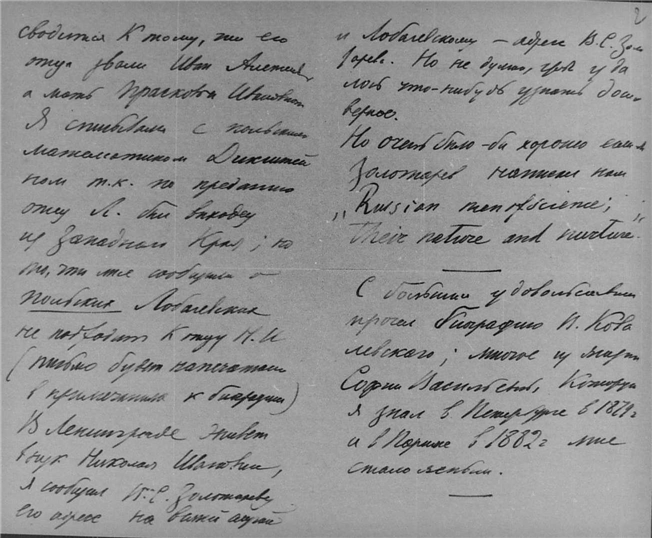 сводится к тому, что его
отца звали Иван Алексеев.
а мать Прасковья Ивановна
Я списывался с польским
математиком Дикштей
ном т.к. по преданию
отец Л. был выходец
из Западного Края; но
то, что мне сообщили о
польских Лобачевских
не подходит к отцу Н.И
(письмо будет напечатано
в примечаниях к биографии)
В Ленинграде живет
внук Николая Ивановича,
я сообщил В.С. Золотареву
его адрес на вашей
2
и Лобачевскому – адрес В.С. Золо
тарева. Но не думаю, чтоб уда
лось что-нибудь узнать досто
верное.
Но очень было-бы хорошо если
Золотарев написал нам
„Russian men of science;
their nature and nurture."
С большим удовольствием
прочел биографию В. Кова
левского; многое из жизни
Софии Васильевны, которую
я знал в Петербурге в 1879 г
и в Париже в 1882 г мне
стало ясным.